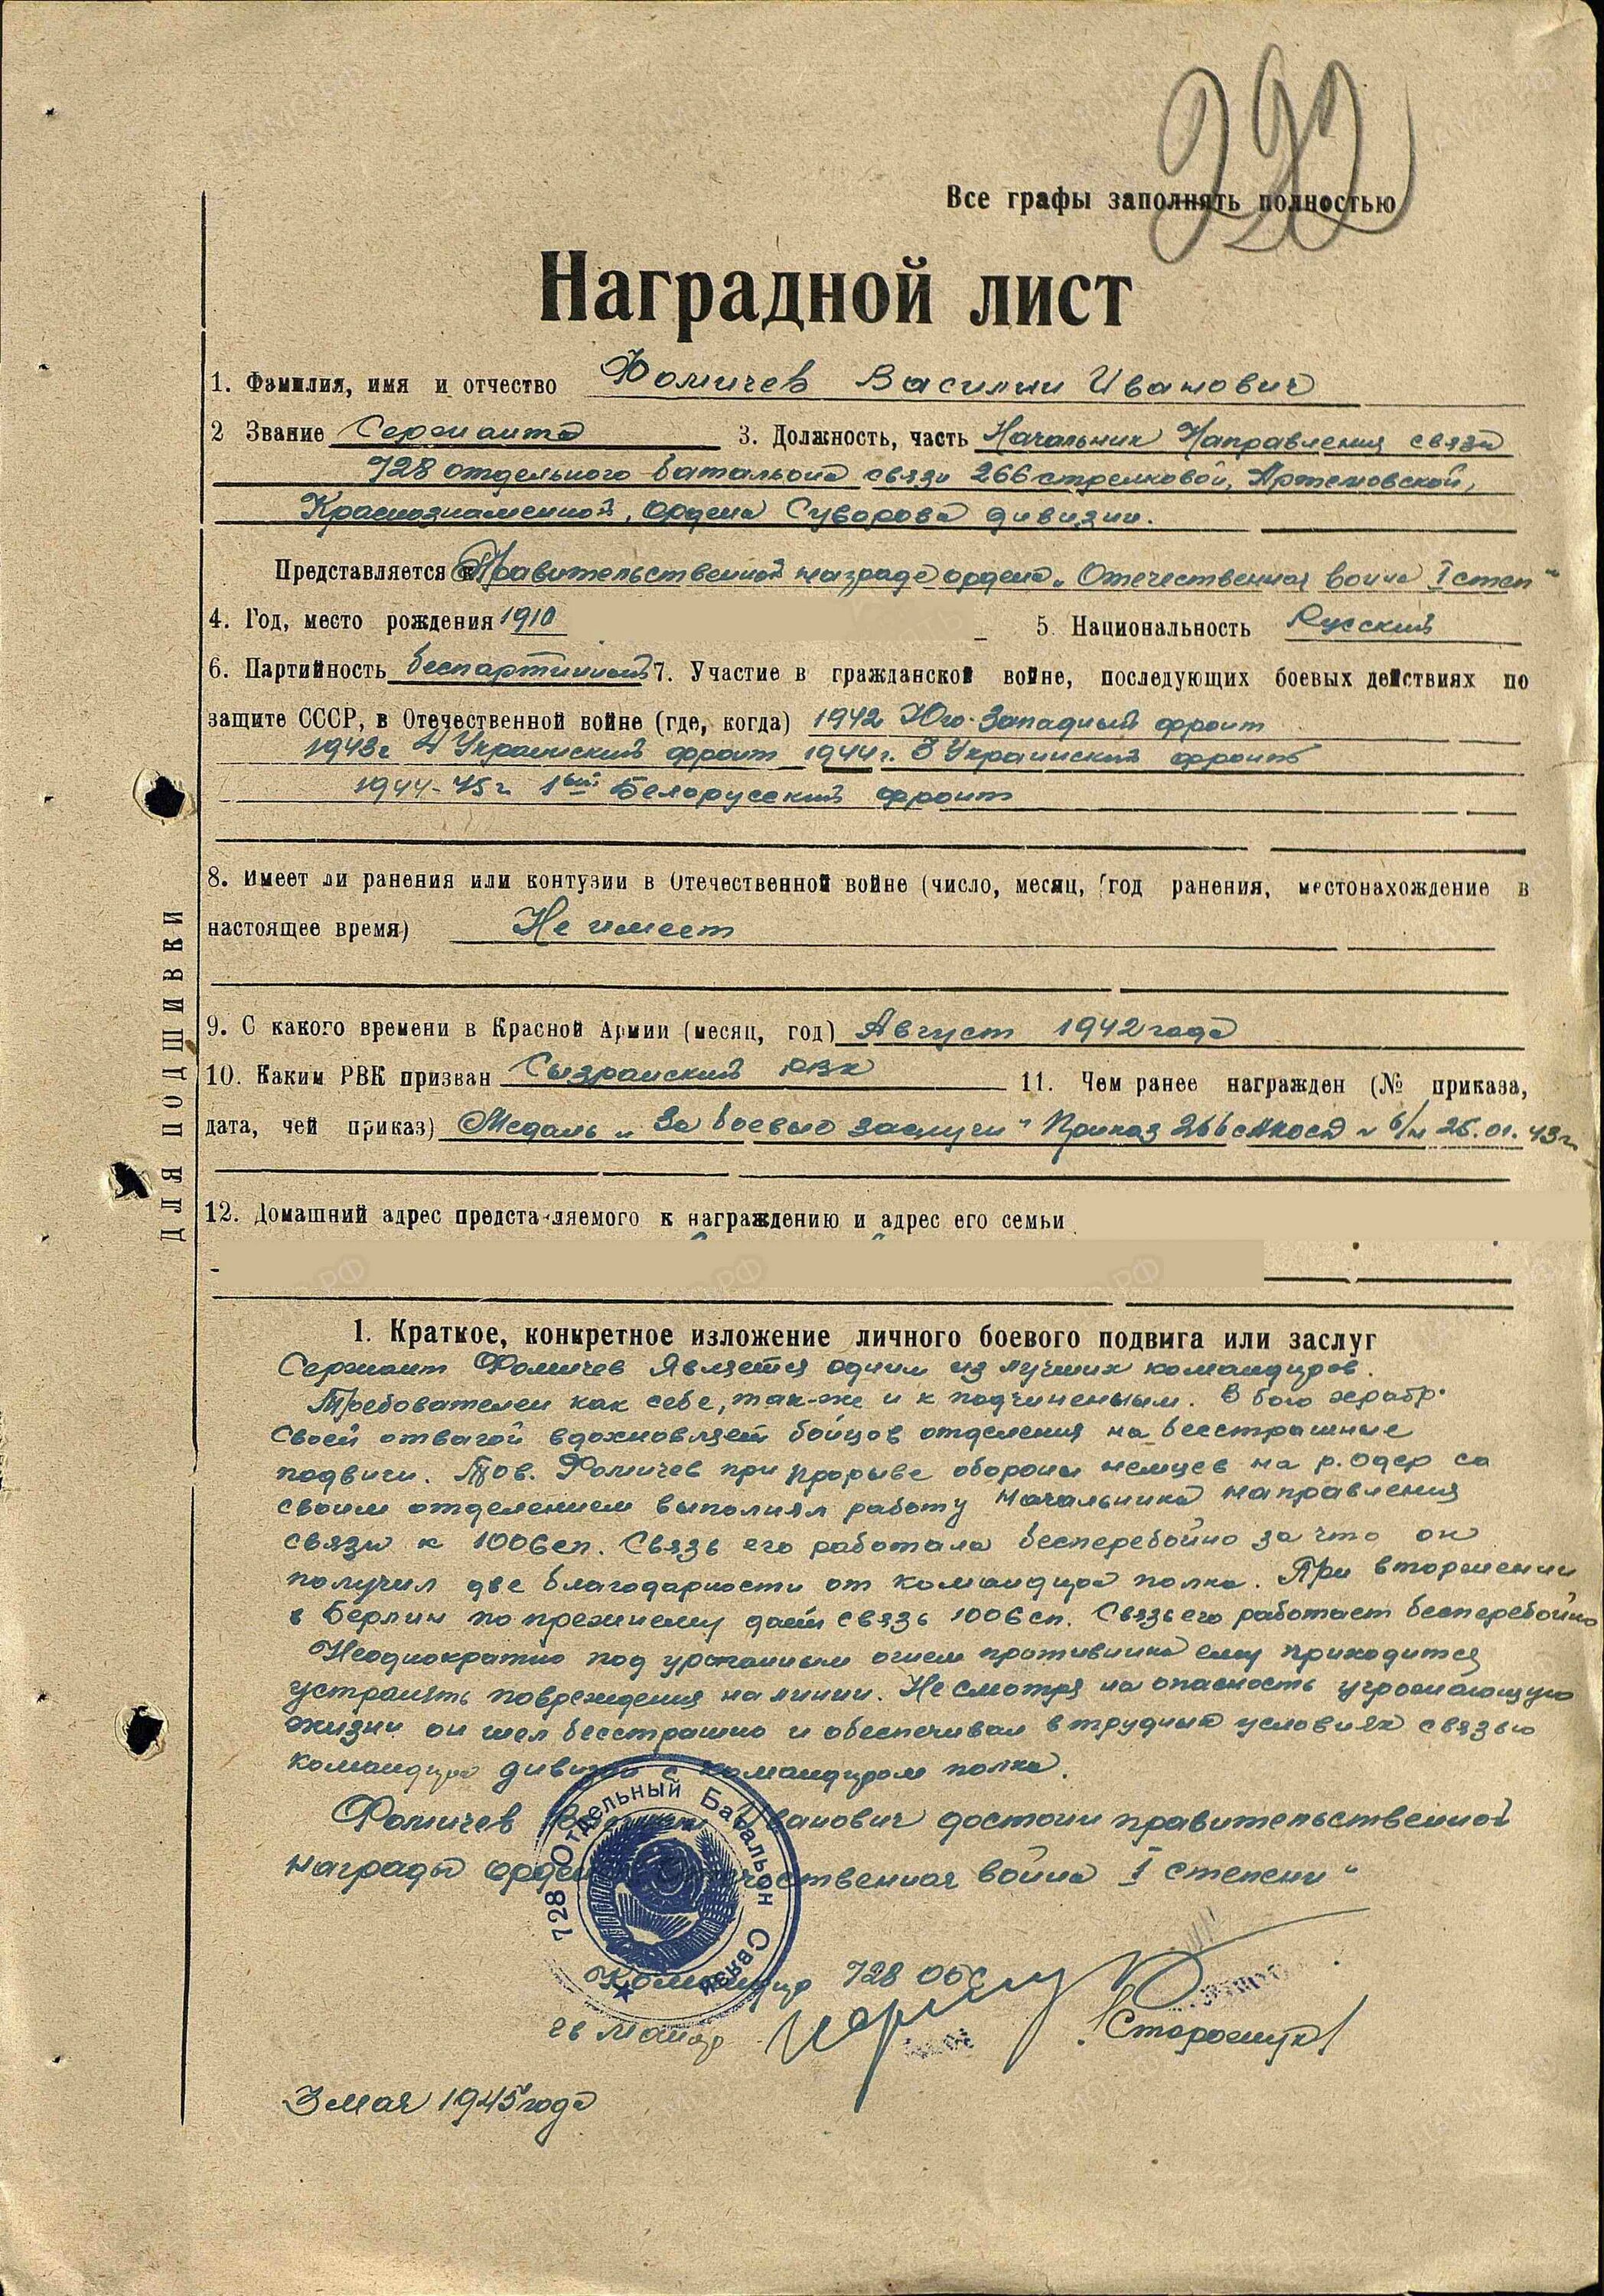 292
Все графы заполнять полностью
Наградной лист
1. Фамилия, имя и отчество Фомичев Василий Иванович
2 Звание Сержанта 3. Должность, часть Начальник Направления связи
728 отдельного батальона связи 266 стрелковой, Артемовской,
Краснознаменной, Ордена Суворова дивизии.
Представляется к Правительственной награде ордена „Отечественная война I степ"
4. Год, место рождения 1910 5. Национальность Русский
6. Партийность беспартийный 7. Участие в гражданской войне, последующих боевых действиях по
защите СССР, в Отечественной войне (где, когда) 1942 Юго-Западный фронт
1943г 4 Украинский фронт 1944г. 3 Украинский фронт
1944-45г 1ый Белорусский фронт
8. Имеет ли ранения или контузии в Отечественной войне (число, месяц, год ранения, местонахождение в
настоящее время) Не имеет
9. С какого времени в Красной Армии (месяц, год) Август 1942 года
10. Каким РВК призван Сызранский РВК 11. Чем ранее награжден (№ приказа,
дата, чей приказ) Медаль „За боевые заслуги" Приказ 266 б/н 25.01.43г
12. Домашний адрес представляемого к награждению и адрес его семьи
ДЛЯ ПОДШИВКИ
1. Краткое, конкретное изложение личного боевого подвига или заслуг
Сержант Фомичев Является одним из лучших командиров.
Требователен как себе, так-же и к подчиненым. В бою храбр.
Своей отвагой вдохновляет бойцов отделения на бесстрашные
подвиги. Тов. Фомичев при прорыве обороны немцев на р. Одер со
своим отделением выполнял работу Начальника направления
связи к 1006 сп. Связь его работала бесперебойно за что он
получил две благодарности от командира полка. При вторжении
в Берлин по прежнему дает связь 1006 сп. Связь его работает бесперебойно
Неоднократно под ураганным огнем противника ему приходится
устранять повреждения на линии. Не смотря на опасность угрожающую
жизни он шел бесстрашно и обеспечивал в трудных условиях связью
командира дивизии с командиром полка.
Фомичев Василий Иванович достоин правительственной
награды ордена „Отечественная война I степени"
728 Отдельный Батальон Связи
Командир 728 ОБС
гв майор /Старощук/
3 мая 1945 года